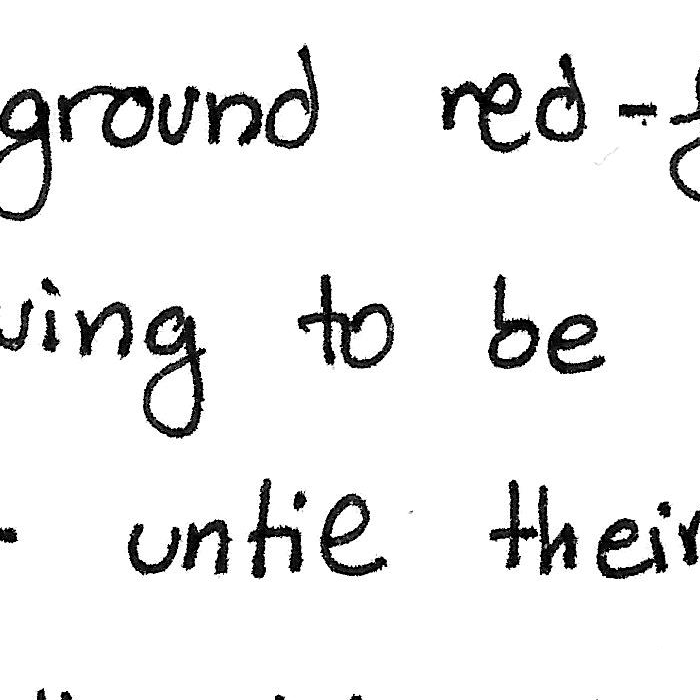 ground red-
ving to be
- untie their